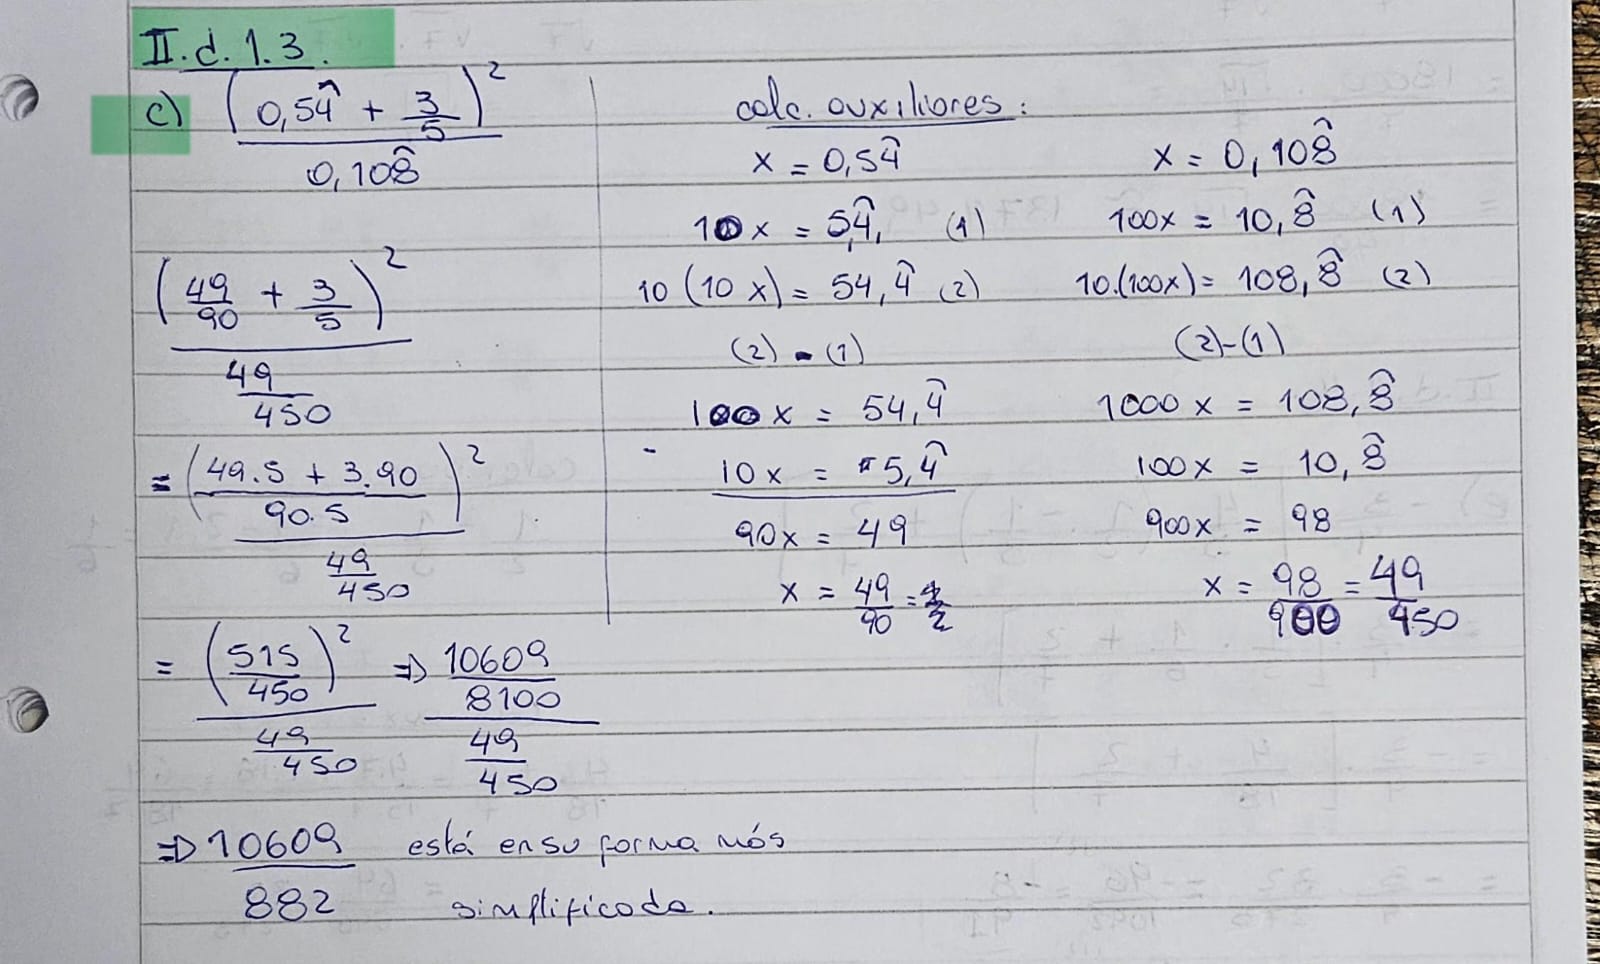 II.d.1.3.
c) (0,54̂ + 3/5)² / 0,108̂
(49/90 + 3/5)² / (49/450)
= ((49.5 + 3.90)/(90.5))² / (49/450)
= (515/450)² / (49/450) => (10609/8100) / (49/450)
=> 10609/882 está en su forma más
simplificada.
calc. auxiliares:
x = 0,54̂
10x = 5,4̂ (1)
10(10x) = 54,4̂ (2)
(2) - (1)
100x = 54,4̂
- 10x = 5,4̂
90x = 49
x = 49/90
x = 0,108̂
100x = 10,8̂ (1)
10.(100x) = 108,8̂ (2)
(2)-(1)
1000x = 108,8̂
100x = 10,8̂
900x = 98
x = 98/900 = 49/450